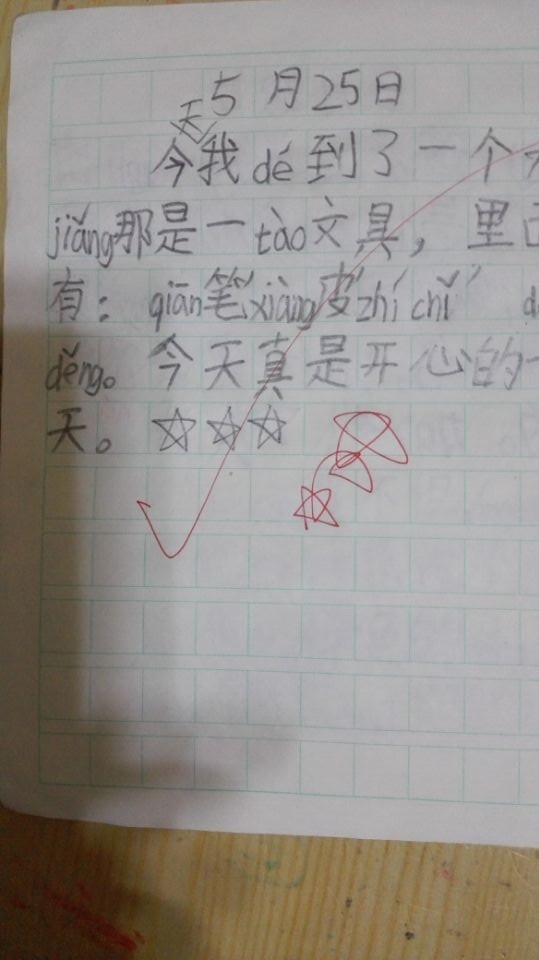 5月25日
今天我dé到了一个
jiǎng那是一tào文具，里
有：qiān笔xiàng皮zhí chǐ
děng。今天真是开心的一
天。☆☆☆